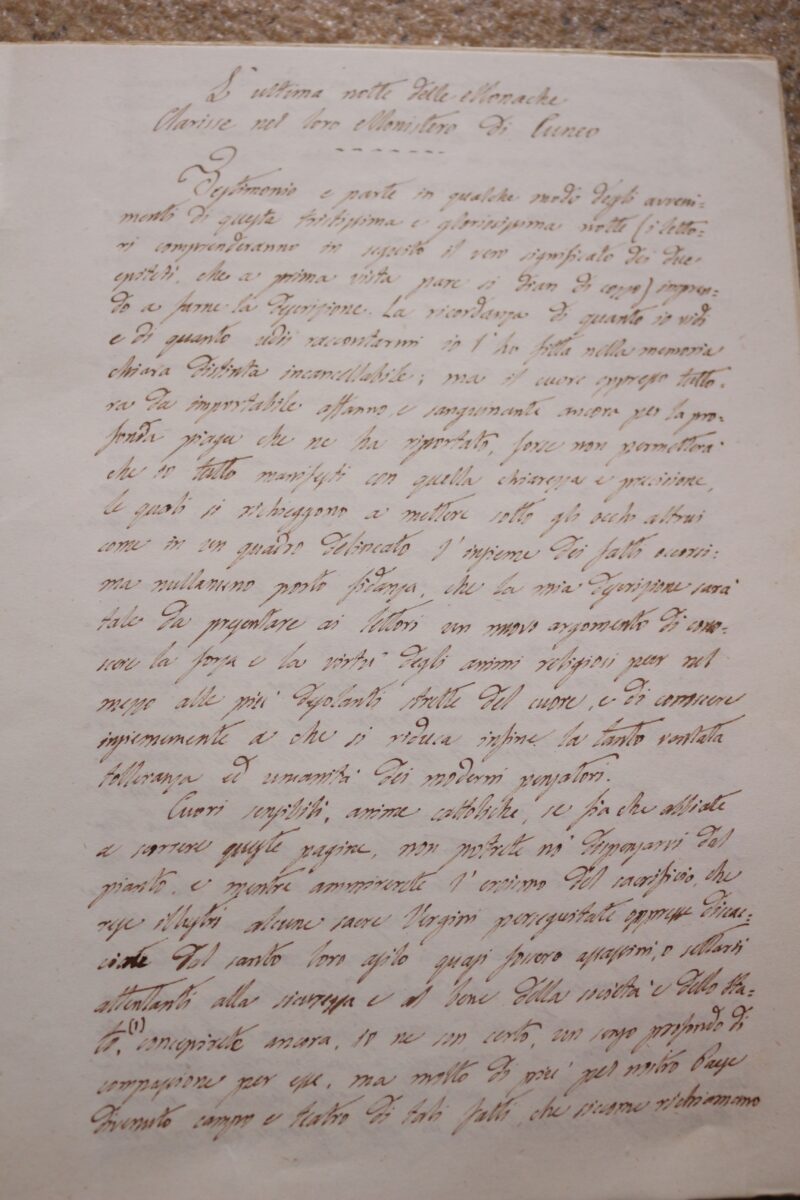 L'ultima notte delle Monache
Clarisse nel loro Monistero di Cuneo
Testimonio e parte in qualche modo degli avveni=
menti di questa tristissima e gloriosissima notte (i letto=
ri comprenderanno in seguito il vero significato dei due
epiteti, che a prima vista pare si dian di cozzo) impren=
do a farne la descrizione. La ricordanza di quanto io vidi
e di quanto udii raccontarmi io l'ho fitta nella memoria
chiara distinta incancellabile; ma il cuore oppresso tutto=
ra da importabile affanno, e sanguinante ancora per la pro=
fonda piaga che ne ha riportato, forse non permetterà
che io tutto manifesti con quella chiarezza e precisione,
le quali si richieggono a mettere sotto gli occhi altrui
come in un quadro delineato l'insieme dei fatti occorsi=
ma nullameno porto fidanza, che la mia descrizione sarà
tale da presentare ai lettori un nuovo argomento di cono=
scere la forza e la virtù degli animi religiosi pur nel
mezzo alle più desolanti strette del cuore, e di conoscere
insiememente a che si riduca infine la tanto vantata
tolleranza ed umanità dei moderni pensatori.
Cuori sensibili, anime cattoliche, se fia che abbiate
a scorrere queste pagine, non potrete no dispensarvi dal
pianto, e mentre ammirerete l'eroismo del sacrificio, che
rese illustri alcune sacre Vergini perseguitate oppresse discac=
ciate dal santo loro asilo quasi fossero assassini, o settarii
attentanti alla sicurezza e al bene della società e dello Sta=
to, (1) concepirete ancora, io ne son certo, un senso profondo di
compassione per esse, ma molto di più pel nostro Paese
divenuto campo e teatro di tali fatti, che siccome richiamano